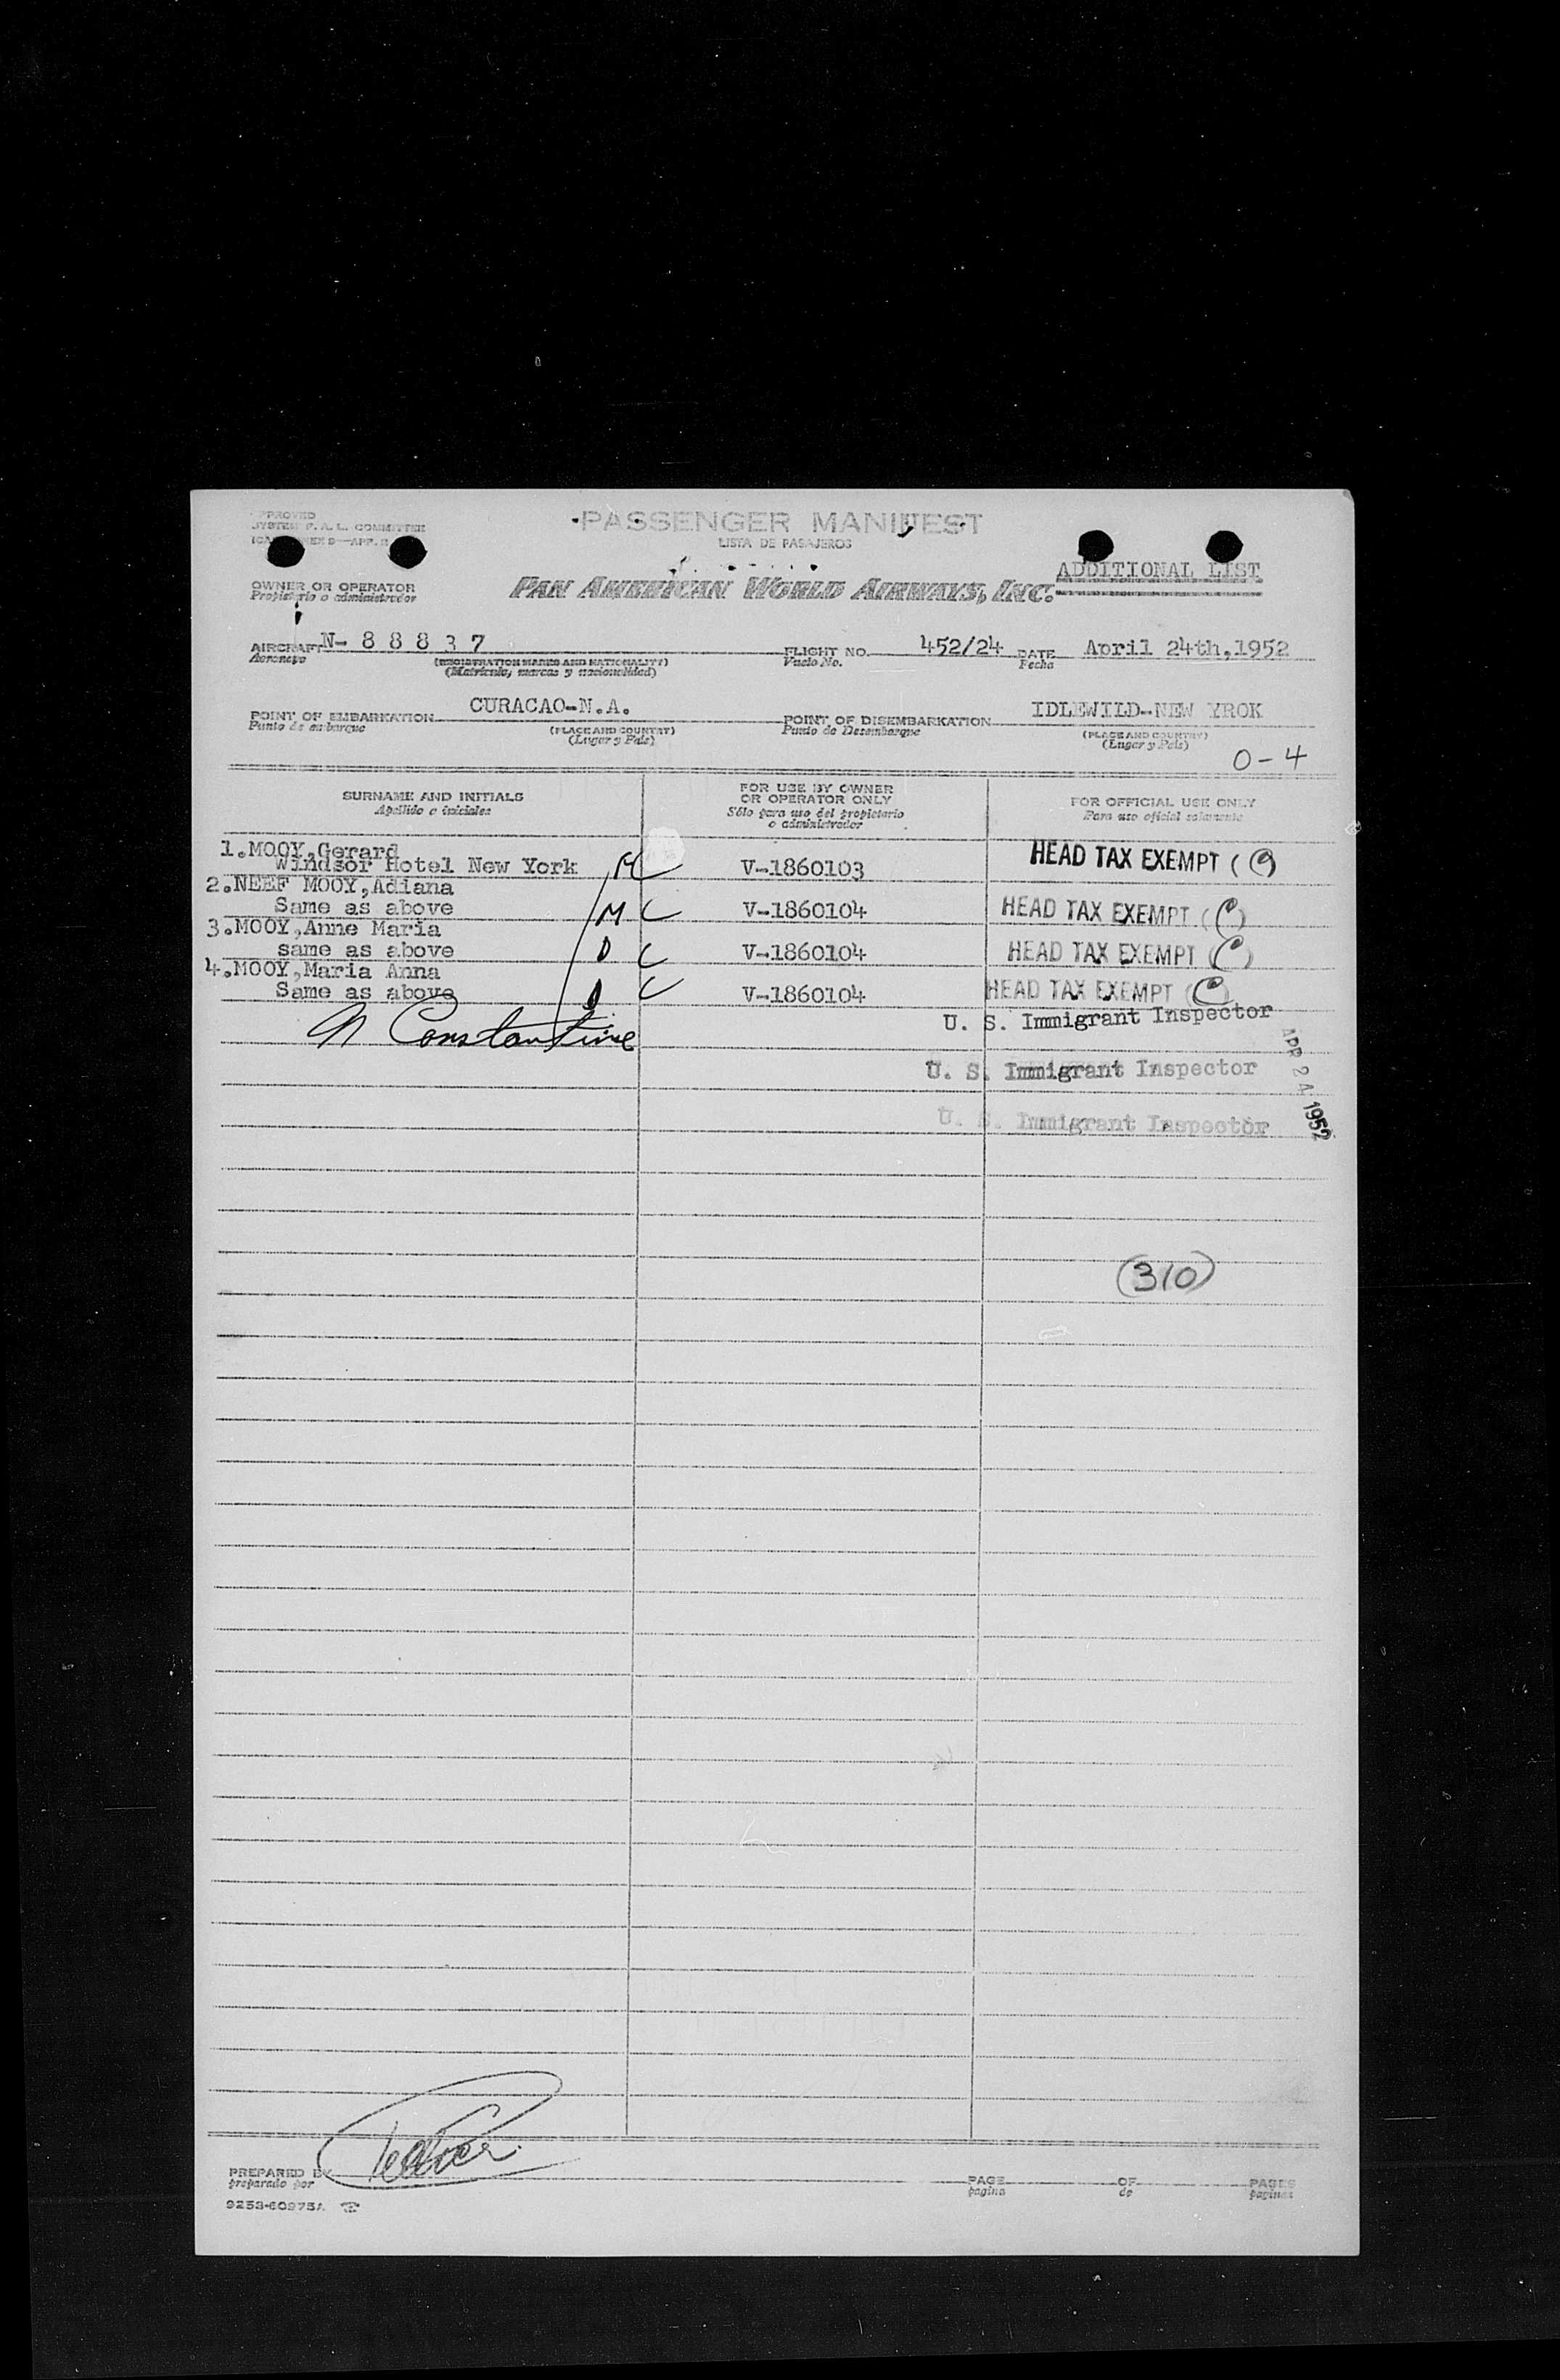 APPROVED
SYSTEM F. A. L. COMMITTEE
PASSENGER MANIFEST
LISTA DE PASAJEROS
ADDITIONAL LIST
OWNER OR OPERATOR
Propietario o administrador
PAN AMERICAN WORLD AIRWAYS, INC.
AIRCRAFT N- 8 8 8 3 7 FLIGHT NO. 452/24 DATE April 24th,1952
Aeronave (REGISTRATION MARKS AND NATIONALITY) Vuelo No. Fecha
(Matrícula, marcas y nacionalidad)
POINT OF EMBARKATION CURACAO-N.A. POINT OF DISEMBARKATION IDLEWILD-NEW YROK
Punto de embarque (PLACE AND COUNTRY) Punto de Desembarque (PLACE AND COUNTRY)
(Lugar y País) (Lugar y País)
0-4
SURNAME AND INITIALS FOR USE BY OWNER OR OPERATOR ONLY FOR OFFICIAL USE ONLY
Apellido e iniciales Sólo para uso del propietario o administrador Para uso oficial solamente
1.MOOY,Gerard
Windsor Hotel New York M C V-1860103 HEAD TAX EXEMPT (C)
2.NEEF MOOY,Adiana
Same as above M C V-1860104 HEAD TAX EXEMPT (C)
3.MOOY,Anne Maria
same as above D C V-1860104 HEAD TAX EXEMPT (C)
4.MOOY,Maria Anna
Same as above D C V-1860104 HEAD TAX EXEMPT (C)
N Constantine U. S. Immigrant Inspector
U. S. Immigrant Inspector
U. S. Immigrant Inspector
APR 24 1952
(310)
PREPARED BY PAGE OF PAGES
preparado por pagina de paginas
9253-60975A